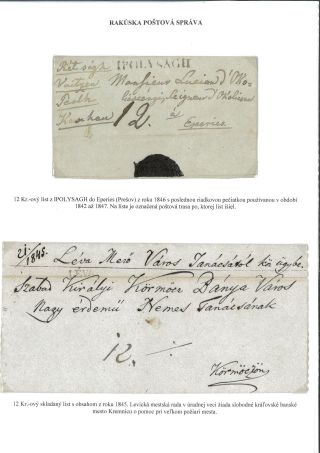 RAKÚSKA POŠTOVÁ SPRÁVA
Rétságh
IPOLYSAGH
Waitzen
Monsieur Lucian d'Ko-
Pesth
Seigneur d'
Kaschau
12.
à
Eperies
12 Kr.-ový list z IPOLYSAGH do Eperies (Prešov) z roku 1846 s poslednou riadkovou pečiatkou používanou v období
1842 až 1847. Na liste je označená poštová trasa po, ktorej list išiel.
21/1845.
Léva Mező Város Tanácsától köz ügybe.
LEVA
Szabad Királyi Körmöcz Banya Város
Nagy érdemű Nemes Tanácsának
12.
Körmöczön
12 Kr.-ový skladaný list s obsahom z roku 1845, Levická mestská rada v úradnej veci žiada slobodné kráľovské banské
mesto Kremnicu o pomoc pri veľkom požiari mesta.